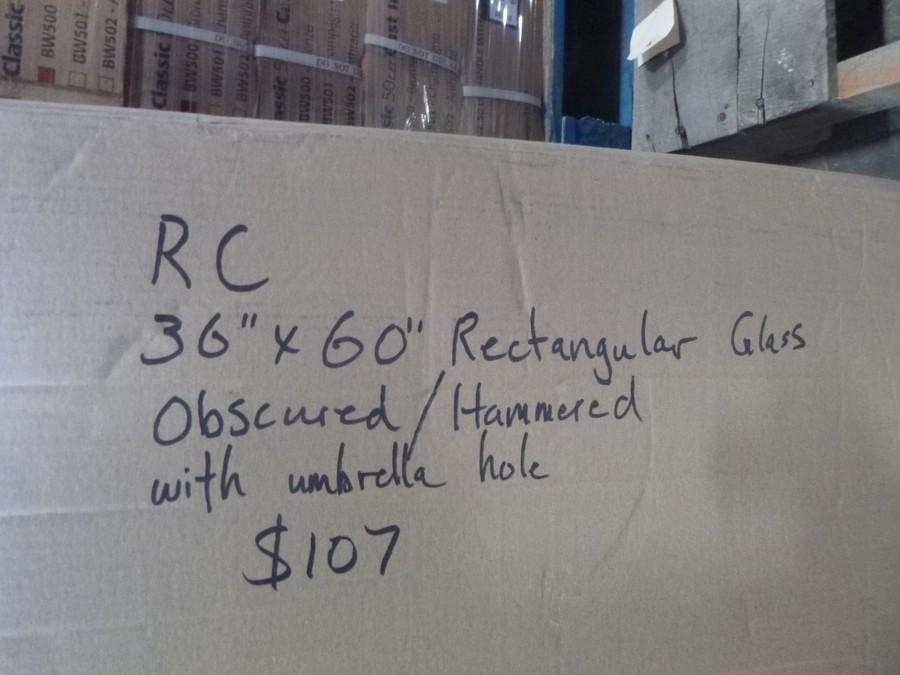 Classic
BW500
BW501
BW502
Classic
BW500
BW501
BW502
DO NOT
BW500
BW501
BW502
DO NOT
DO NOT
RC
36" x 60" Rectangular Glass
Obscured / Hammered
with umbrella hole
$107